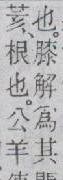 也。膝解爲其
荄、根也。公羊